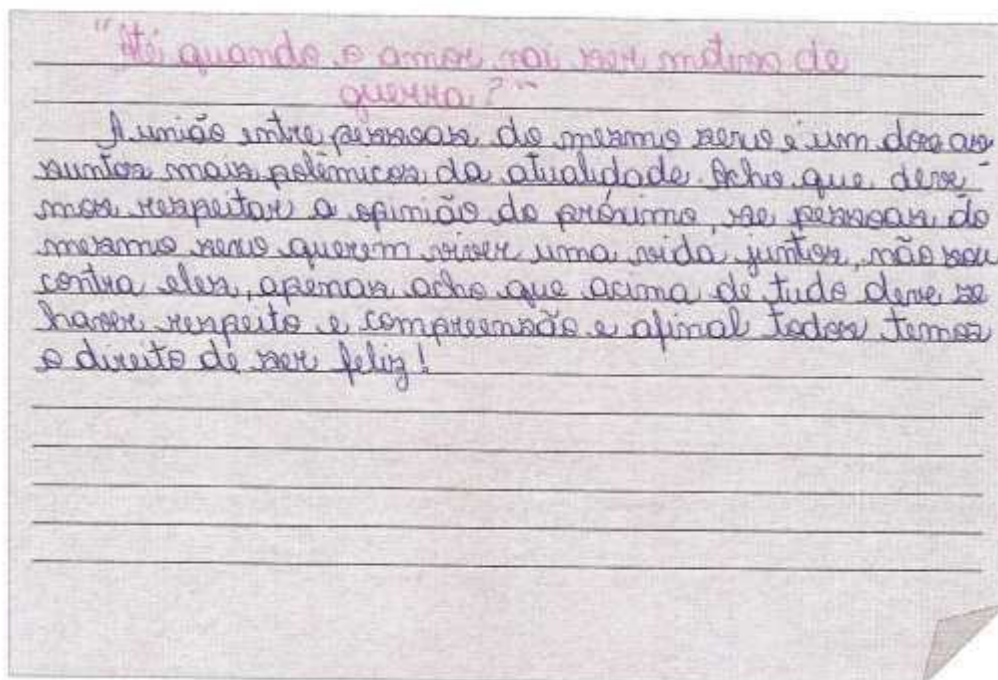 "Até quando o amor vai ser motivo de
guerra?"
A união entre pessoas do mesmo sexo é um dos as
suntos mais polêmicos da atualidade. Acho que deve-
mos respeitar a opinião do próximo, se pessoas do
mesmo sexo querem viver uma vida juntos, não sou
contra eles, apenas acho que acima de tudo deve se
haver respeito e compreensão e afinal todos temos
o direito de ser feliz!